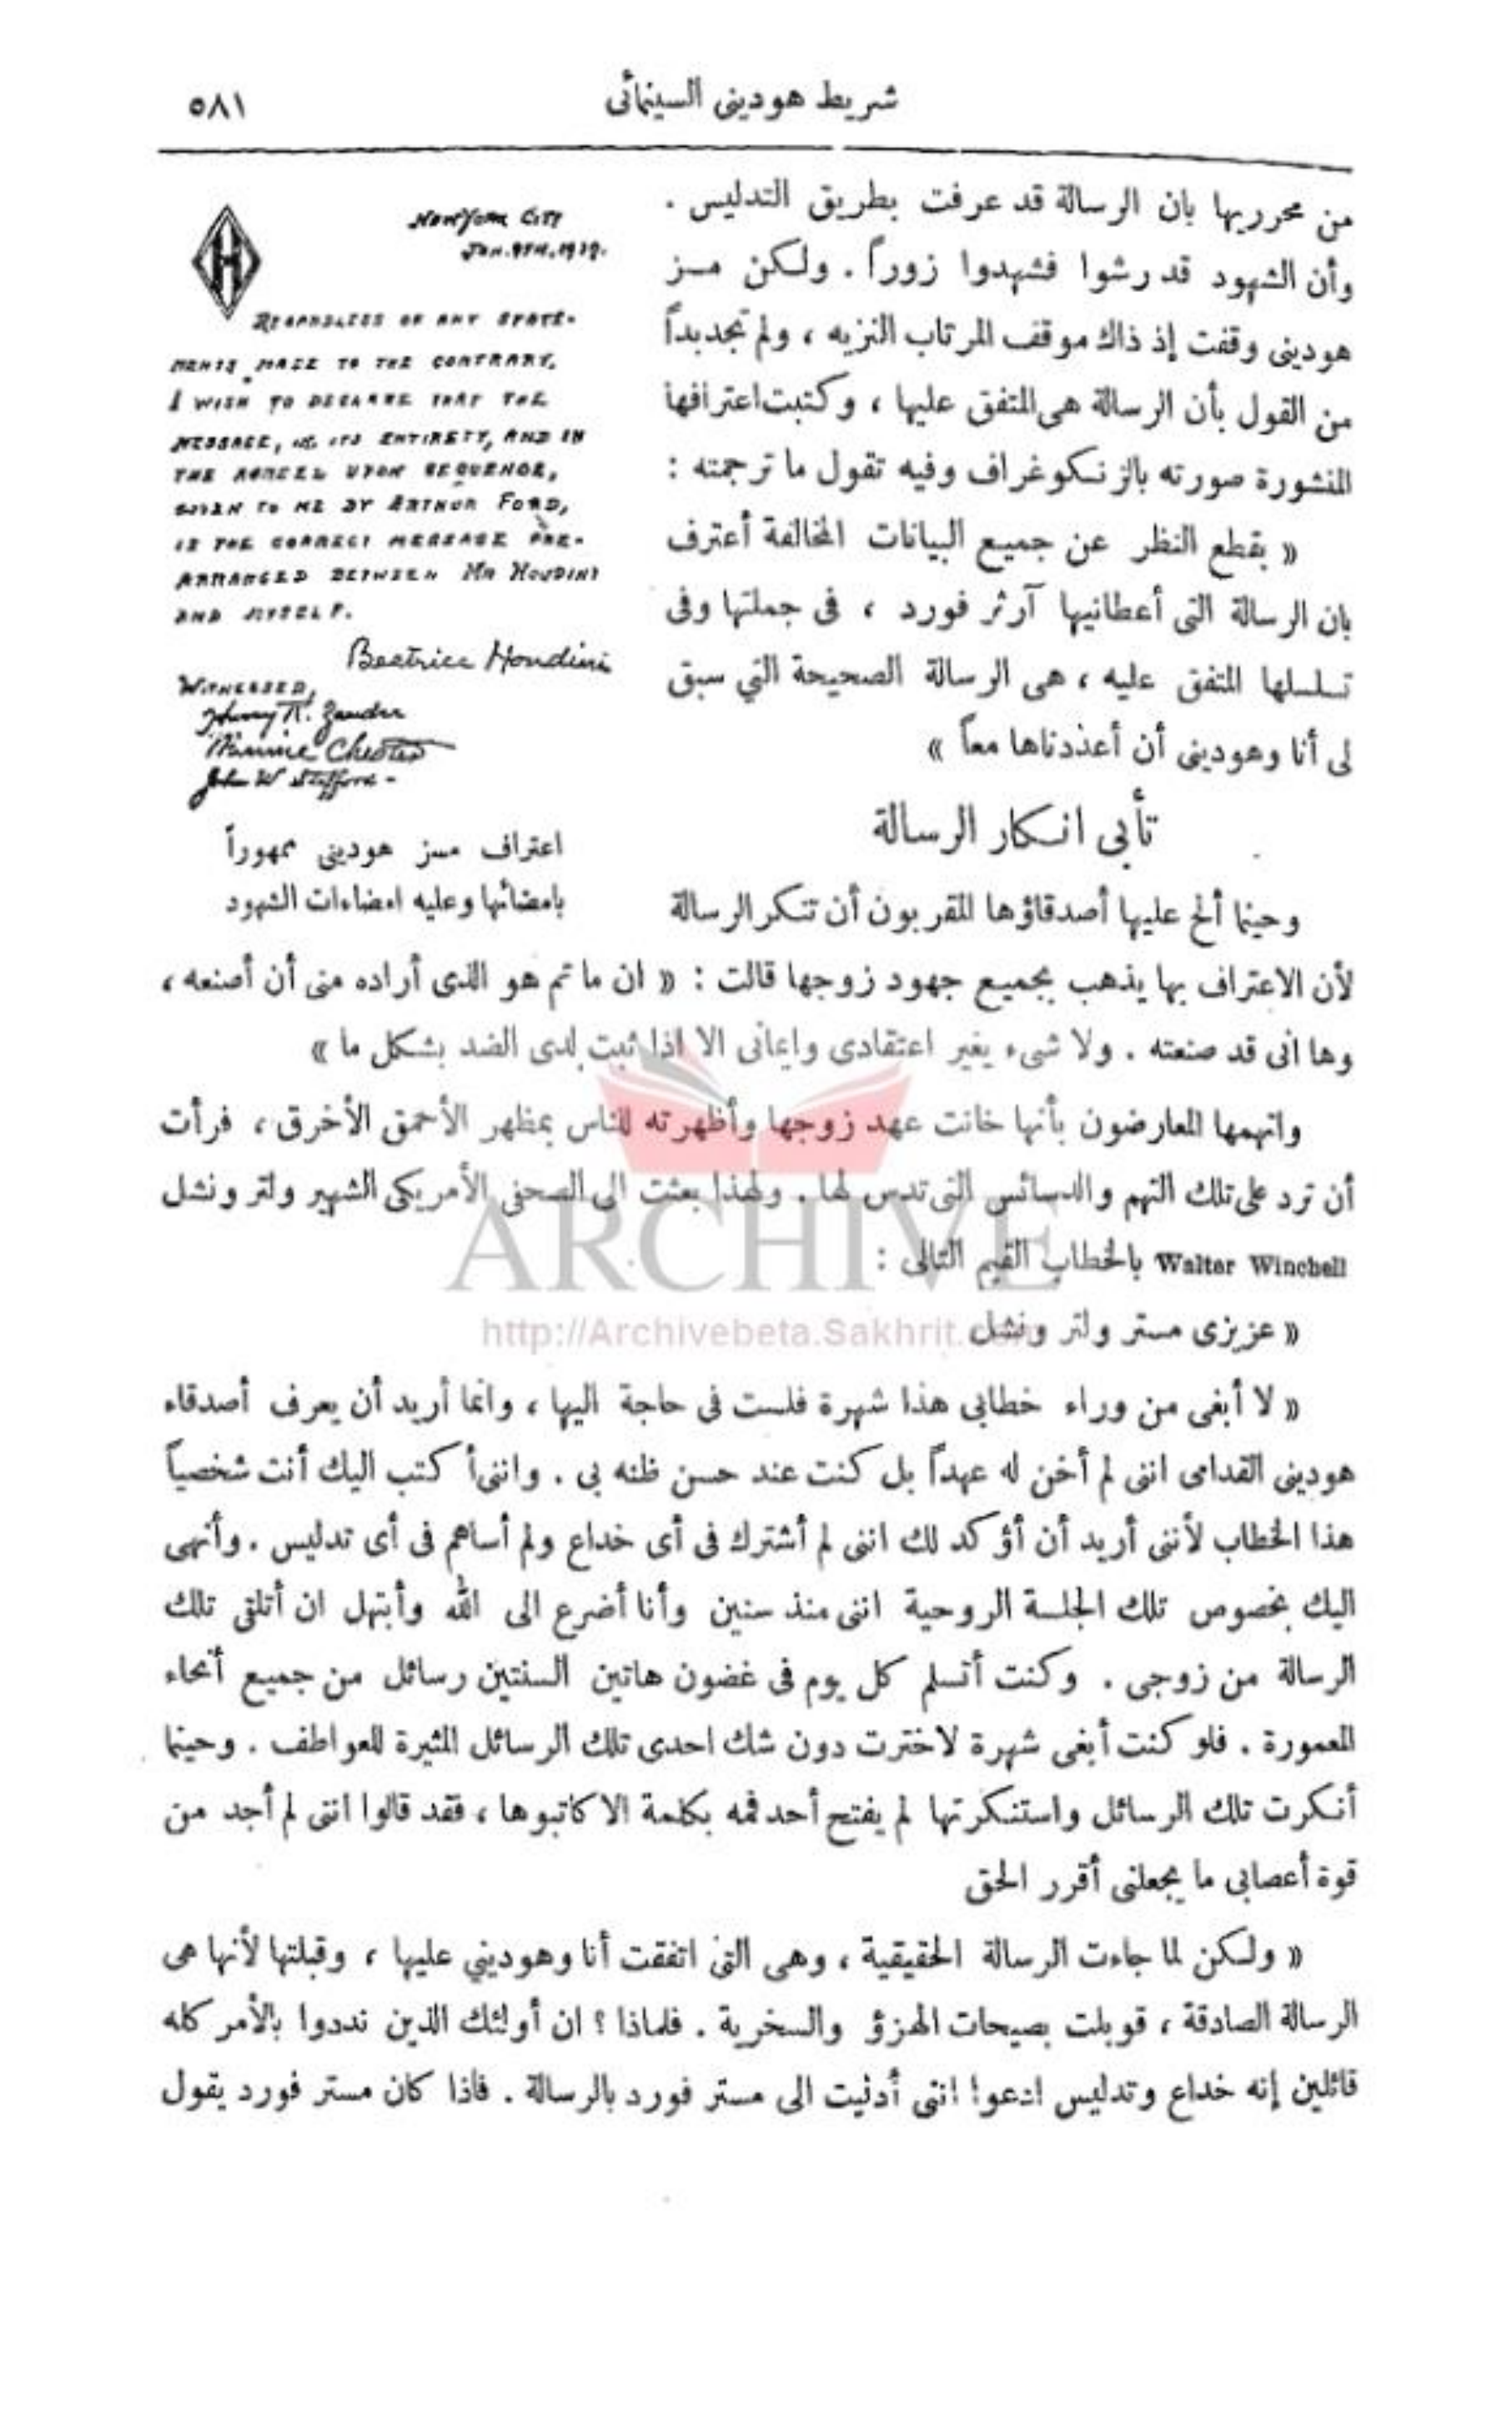 شريط هودينى السينمائى
٥٨١
من محرريها بان الرسالة قد عرفت بطريق التدليس .
وأن الشهود قد رشوا فشهدوا زوراً . ولكن مسز
هودينى وقفت إذ ذاك موقف المرتاب النزيه ، ولم تجد بداً
من القول بأن الرسالة هى المتفق عليها ، وكتبت اعترافها
المنشورة صورته بالزنكوغراف وفيه تقول ما ترجمته :
« بقطع النظر عن جميع البيانات المخالفة أعترف
بان الرسالة التى أعطانيها آرثر فورد ، فى جملتها وفى
تسلسلها المتفق عليه ، هى الرسالة الصحيحة التي سبق
لى أنا وهودينى أن أعددناها معاً »
NEW YORK CITY
JAN. 9TH. 1929.
H
REGARDLESS OF ANY STATE-
MENTS MADE TO THE CONTRARY,
I WISH TO DECLARE THAT THE
MESSAGE, IN ITS ENTIRETY, AND IN
THE AGREED UPON SEQUENCE,
GIVEN TO ME BY ARTHUR FORD,
IS THE CORRECT MESSAGE PRE-
ARRANGED BETWEEN MR HOUDINI
AND MYSELF.
Beatrice Houdini
WITNESSED,
Harry R. Zander
Minnie Chester
John W Stafford -
اعتراف مسز هودينى ممهوراً
بامضائها وعليه امضاءات الشهود
تأبى انكار الرسالة
وحينما ألح عليها أصدقاؤها المقربون أن تنكر الرسالة
لأن الاعتراف بها يذهب بجميع جهود زوجها قالت : « ان ما تم هو الذى أراده منى أن أصنعه ،
وها انى قد صنعته . ولا شىء يغير اعتقادى وايمانى الا اذا ثبت لدى الضد بشكل ما »
واتهمها المعارضون بأنها خانت عهد زوجها وأظهرته للناس بمظهر الأحمق الأخرق ، فرأت
أن ترد على تلك التهم والدسائس التى تدس لها . ولهذا بعثت الى الصحفى الأمريكى الشهير ولتر ونشل
Walter Winchell بالخطاب القيم التالى :
« عزيزى مستر ولتر ونشل
« لا أبغى من وراء خطابى هذا شهرة فلست فى حاجة اليها ، وانما أريد أن يعرف أصدقاء
هودينى القدامى اننى لم أخن له عهداً بل كنت عند حسن ظنه بى . واننى أكتب اليك أنت شخصياً
هذا الخطاب لأننى أريد أن أؤكد لك اننى لم أشترك فى أى خداع ولم أساهم فى أى تدليس . وأنهى
اليك بخصوص تلك الجلسة الروحية اننى منذ سنين وأنا أضرع الى الله وأبتهل ان أتلقى تلك
الرسالة من زوجى . وكنت أتسلم كل يوم فى غضون هاتين السنتين رسائل من جميع أنحاء
المعمورة . فلو كنت أبغى شهرة لاخترت دون شك احدى تلك الرسائل المثيرة للعواطف . وحينما
أنكرت تلك الرسائل واستنكرتها لم يفتح أحد فمه بكلمة الا كاتبوها ، فقد قالوا اننى لم أجد من
قوة أعصابى ما يجعلنى أقرر الحق
« ولكن لما جاءت الرسالة الحقيقية ، وهى التى اتفقت أنا وهوديني عليها ، وقبلتها لأنها هى
الرسالة الصادقة ، قوبلت بصيحات الهزؤ والسخرية . فلماذا ؟ ان أولئك الذين نددوا بالأمر كله
قائلين إنه خداع وتدليس ادعوا اننى أدليت الى مستر فورد بالرسالة . فاذا كان مستر فورد يقول
ARCHIVE
http://Archivebeta.Sakhrit.com